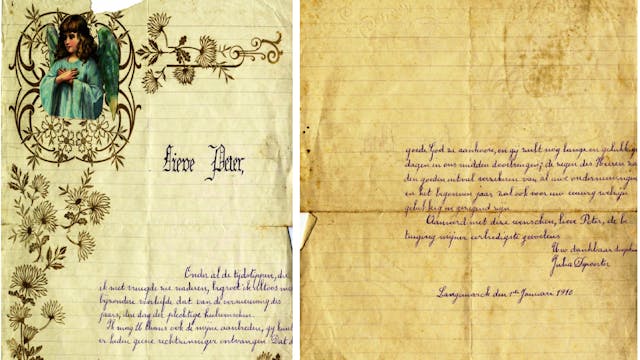 Lieve Peter,
Onder al de tijdstippen, die
ik met vreugde zie naderen, begroet ik altoos
bijzondere voorliefde dat van de vernieuwing des
jaars, den dag der plechtige heilwenschen.
Ik mag U thans ook de mijne aanbieden, gy
er heden geene rechtzinniger ontvangen. Dat
goede God ze aanhoore, en gy zult nog lange en gelukkige
dagen in ons midden doorbrengen; de zegen des Heeren
den goeden uitval verzekeren van al uwe ondernemingen
en het begonnen jaar zal ook voor uw eeuwig welzijn
gelukkig en zegenend zijn.
Aanvaard met deze wenschen, lieve Peter, de be
tuiging mijner eerbiedigste gevoelens
Uw dankbaar
Julia Depoorter
Langemarck den 1en Januari 1910